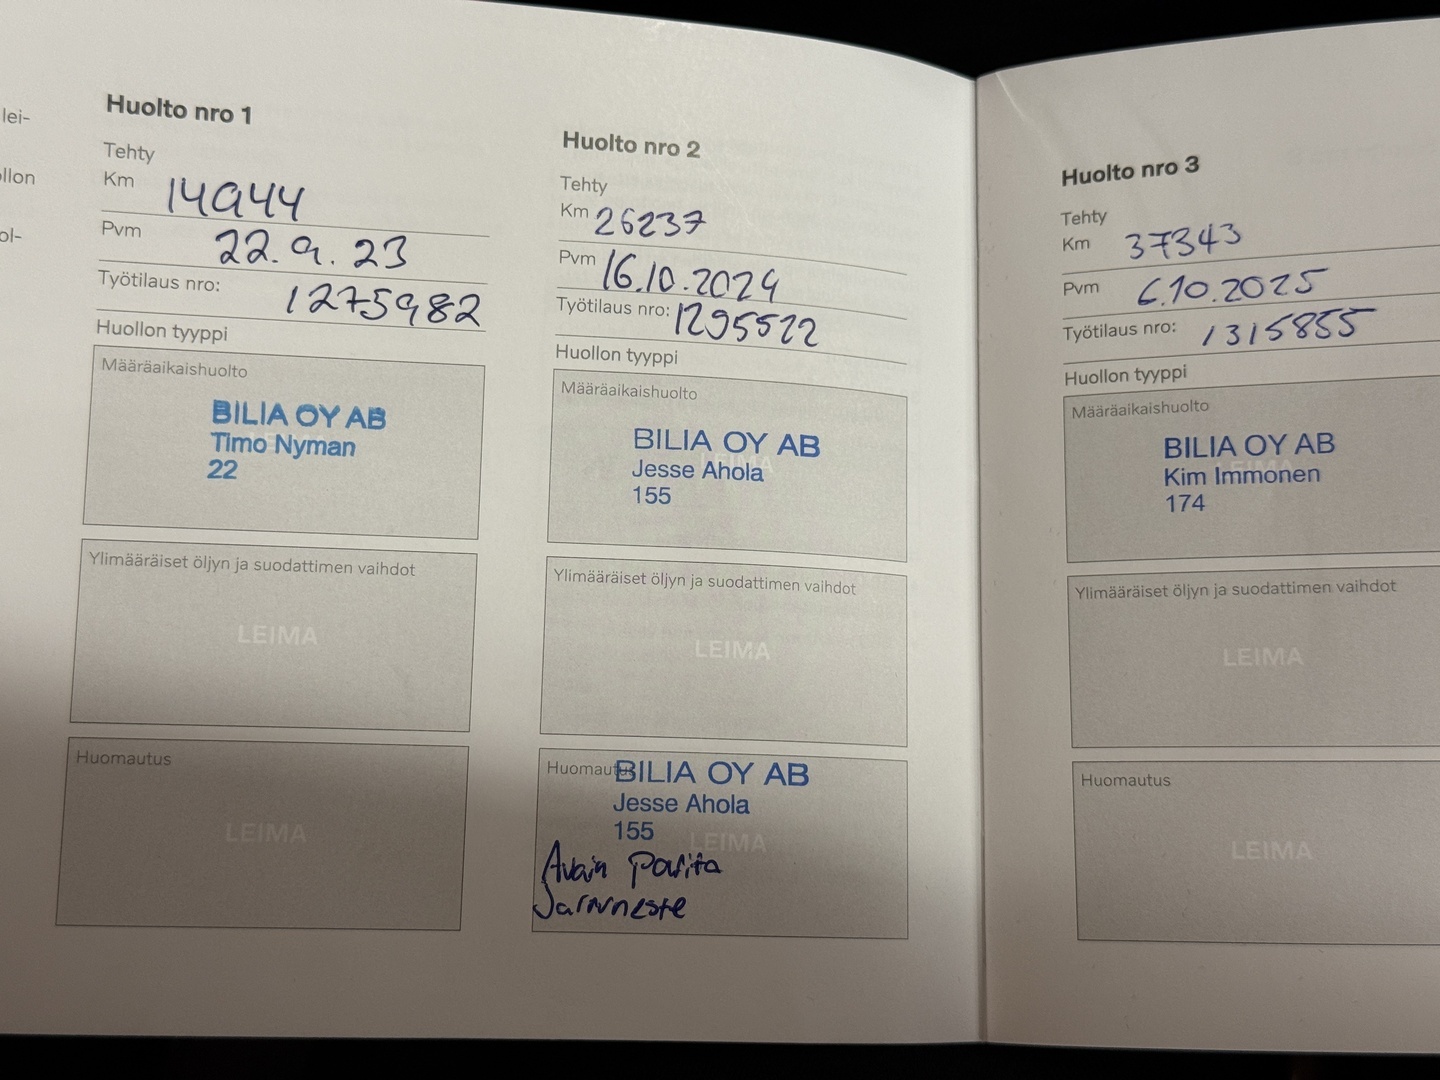 lei-
ollon
ol-
Huolto nro 1
Tehty
Km 14944
Pvm 22.9.23
Työtilaus nro: 1275982
Huollon tyyppi
Määräaikaishuolto
BILIA OY AB
Timo Nyman
22
Ylimääräiset öljyn ja suodattimen vaihdot
LEIMA
Huomautus
LEIMA
Huolto nro 2
Tehty
Km 26237
Pvm 16.10.2024
Työtilaus nro: 1295522
Huollon tyyppi
Määräaikaishuolto
LEIMA
BILIA OY AB
Jesse Ahola
155
Ylimääräiset öljyn ja suodattimen vaihdot
LEIMA
Huomautus
BILIA OY AB
Jesse Ahola
155
LEIMA
Avain
Jarruneste
Huolto nro 3
Tehty
Km 37343
Pvm 6.10.2025
Työtilaus nro: 1315855
Huollon tyyppi
Määräaikaishuolto
BILIA OY AB
Kim Immonen
174
Ylimääräiset öljyn ja suodattimen vaihdot
LEIMA
Huomautus
LEIMA